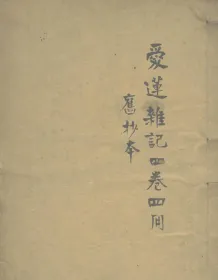 愛蓮雜記四卷四冊
舊抄本